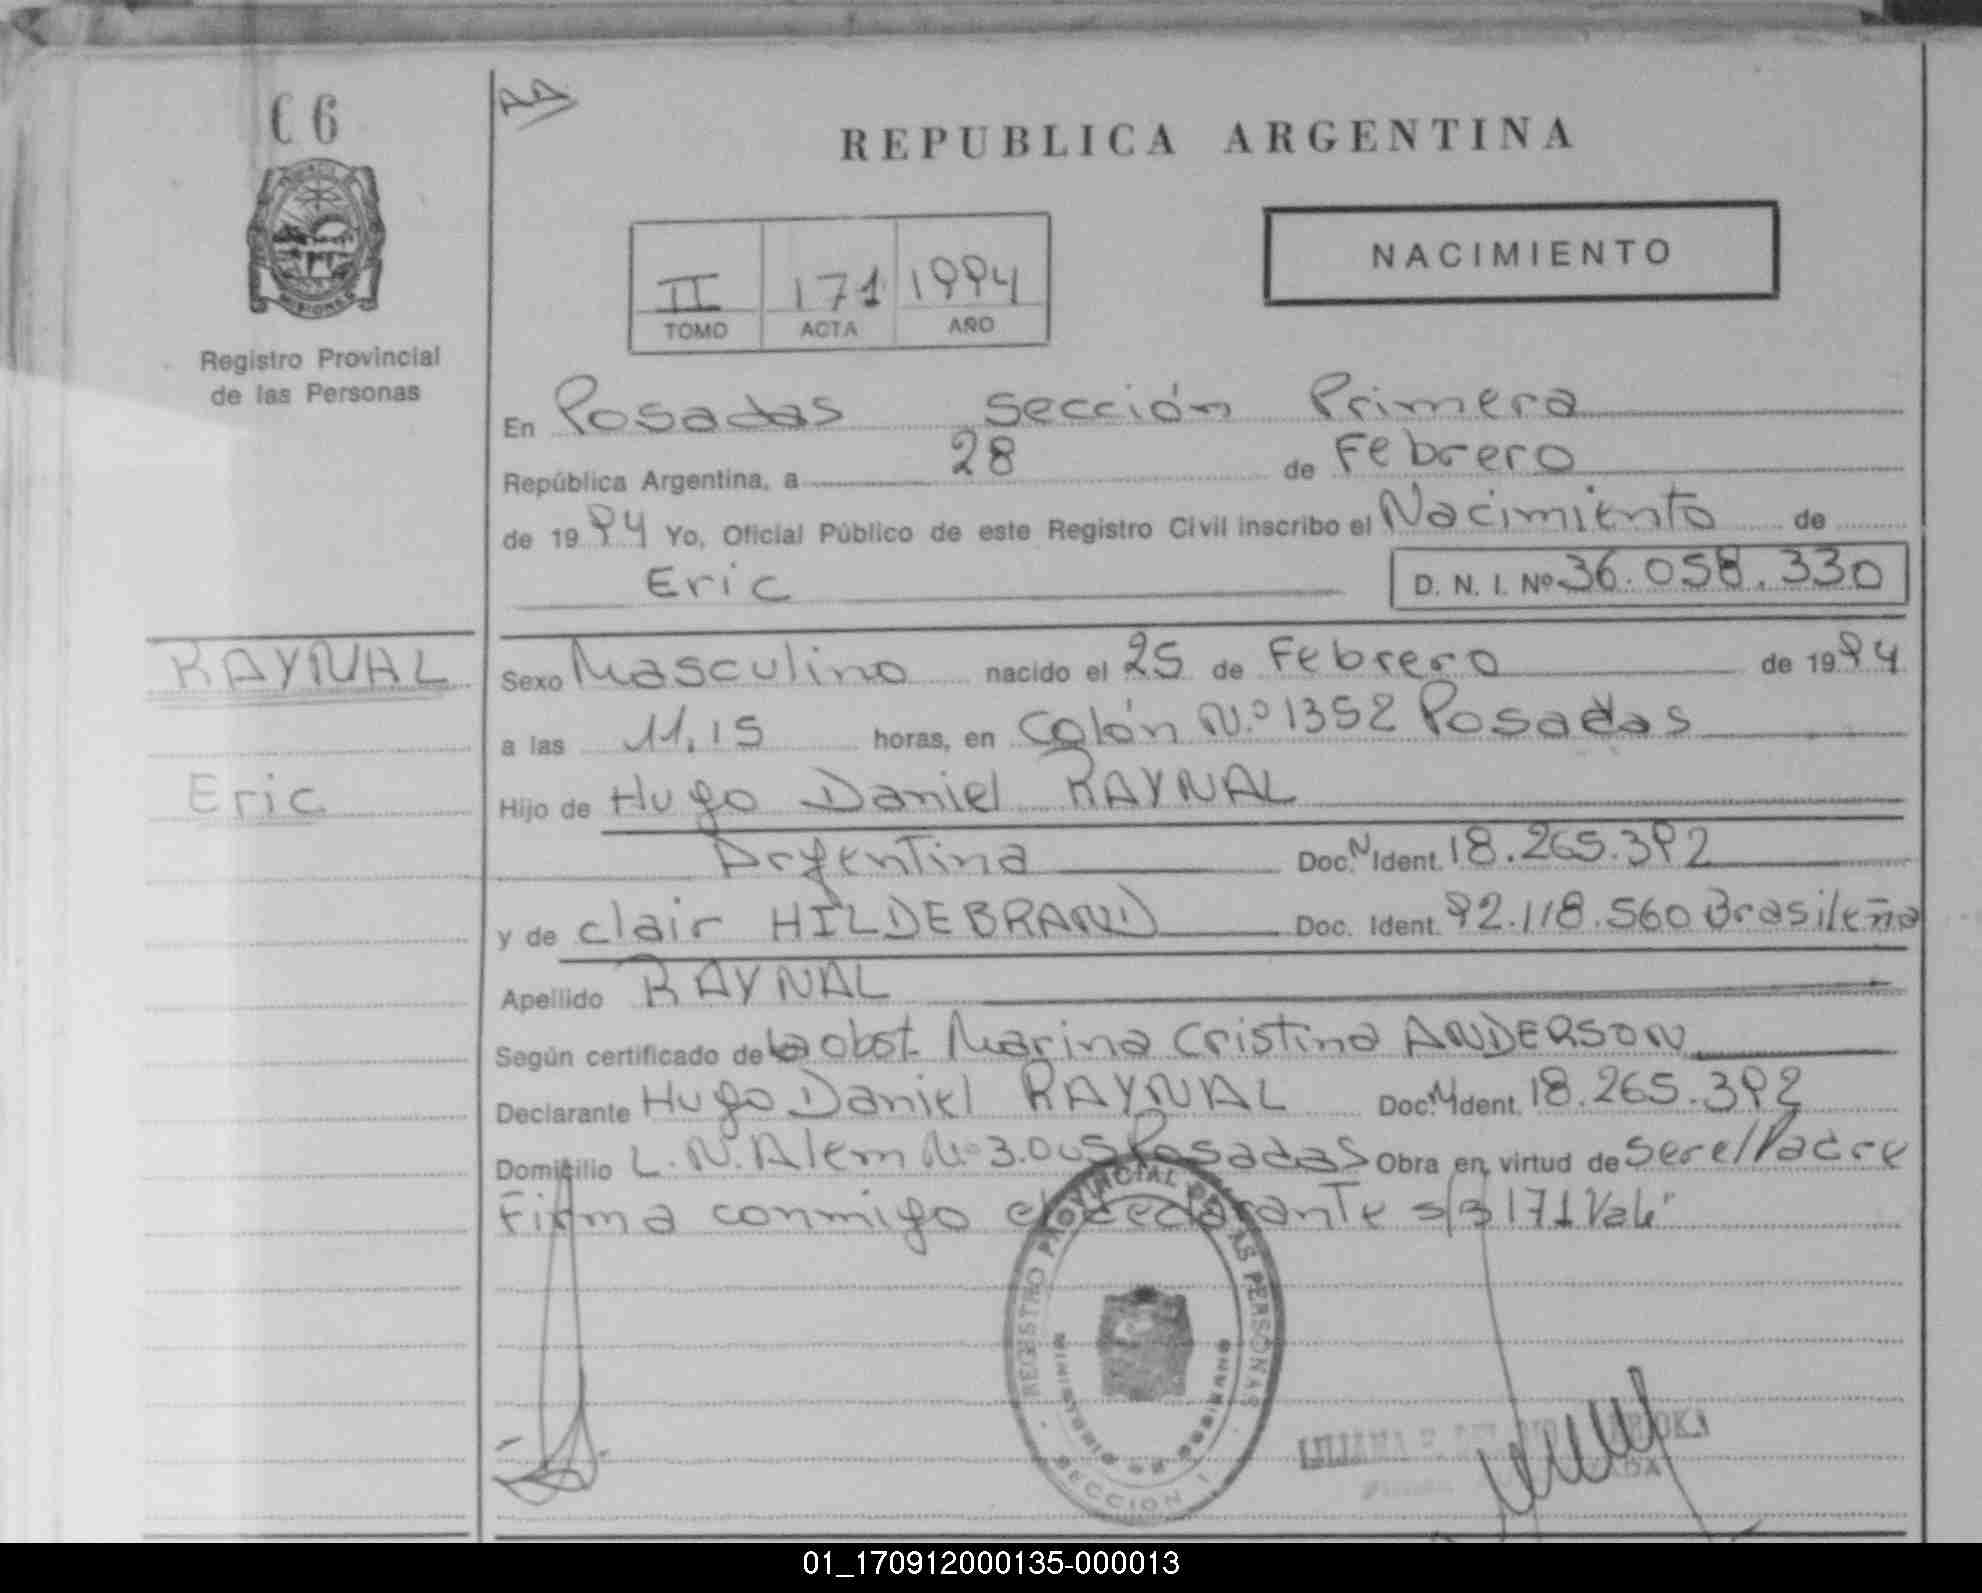 C 6
AA
REPUBLICA ARGENTINA
MISIONES
II 171 1994
TOMO ACTA AÑO
NACIMIENTO
Registro Provincial
de las Personas
En Posadas Sección Primera
República Argentina, a 28 de Febrero
de 1994 Yo, Oficial Público de este Registro Civil inscribo el Nacimiento de
Eric D. N. I. Nº 36.058.330
RAYNAL
Sexo Masculino nacido el 25 de Febrero de 1994
a las 11,15 horas, en Colón N.º 1352 Posadas
Eric
Hijo de Hugo Daniel RAYNAL
Argentina Doc. N. Ident. 18.265.392
y de clair HILDEBRAND Doc. Ident. 92.118.560 Brasileña
Apellido RAYNAL
Según certificado de la obst. Marina Cristina ANDERSON
Declarante Hugo Daniel RAYNAL Doc. N. Ident. 18.265.392
Domicilio L. N. Alem Nº 3.005 Posadas Obra en virtud de ser el Padre
Firma conmigo el declarante s/B 171 Vale"
REGISTRO PROVINCIAL DE LAS PERSONAS
MINISTERIO DE GOBIERNO
SECCION I
LILIANA
01_170912000135-000013